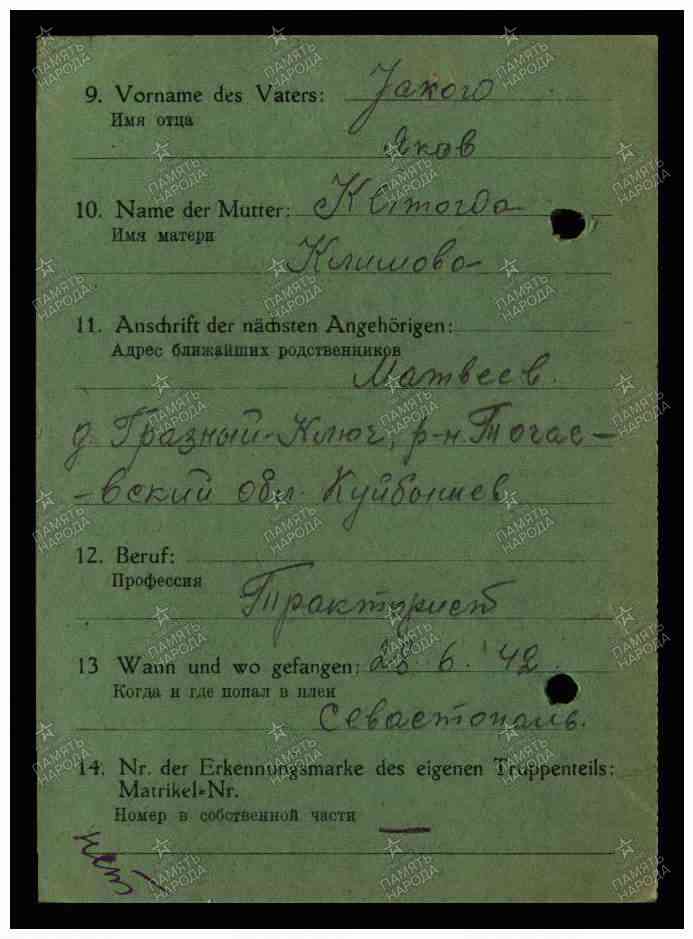 9. Vorname des Vaters: Јакого
Имя отца
Яков
10. Name der Mutter:
Имя матери
Климова
11. Anschrift der nächsten Angehörigen:
Адрес ближайших родственников
Матвеев.
д. Гразный-Ключ, р-н. Тогас-
-вский обл. Куйбониев
12. Beruf:
Профессия
Трактурист
13 Wann und wo gefangen: 28. 6. 42.
Когда и где попал в плен
Севастополь.
14. Nr. der Erkennungsmarke des eigenen Truppenteils:
Matrikel-Nr.
Номер в собственной части
—
нет
ПАМЯТЬ
НАРОДА